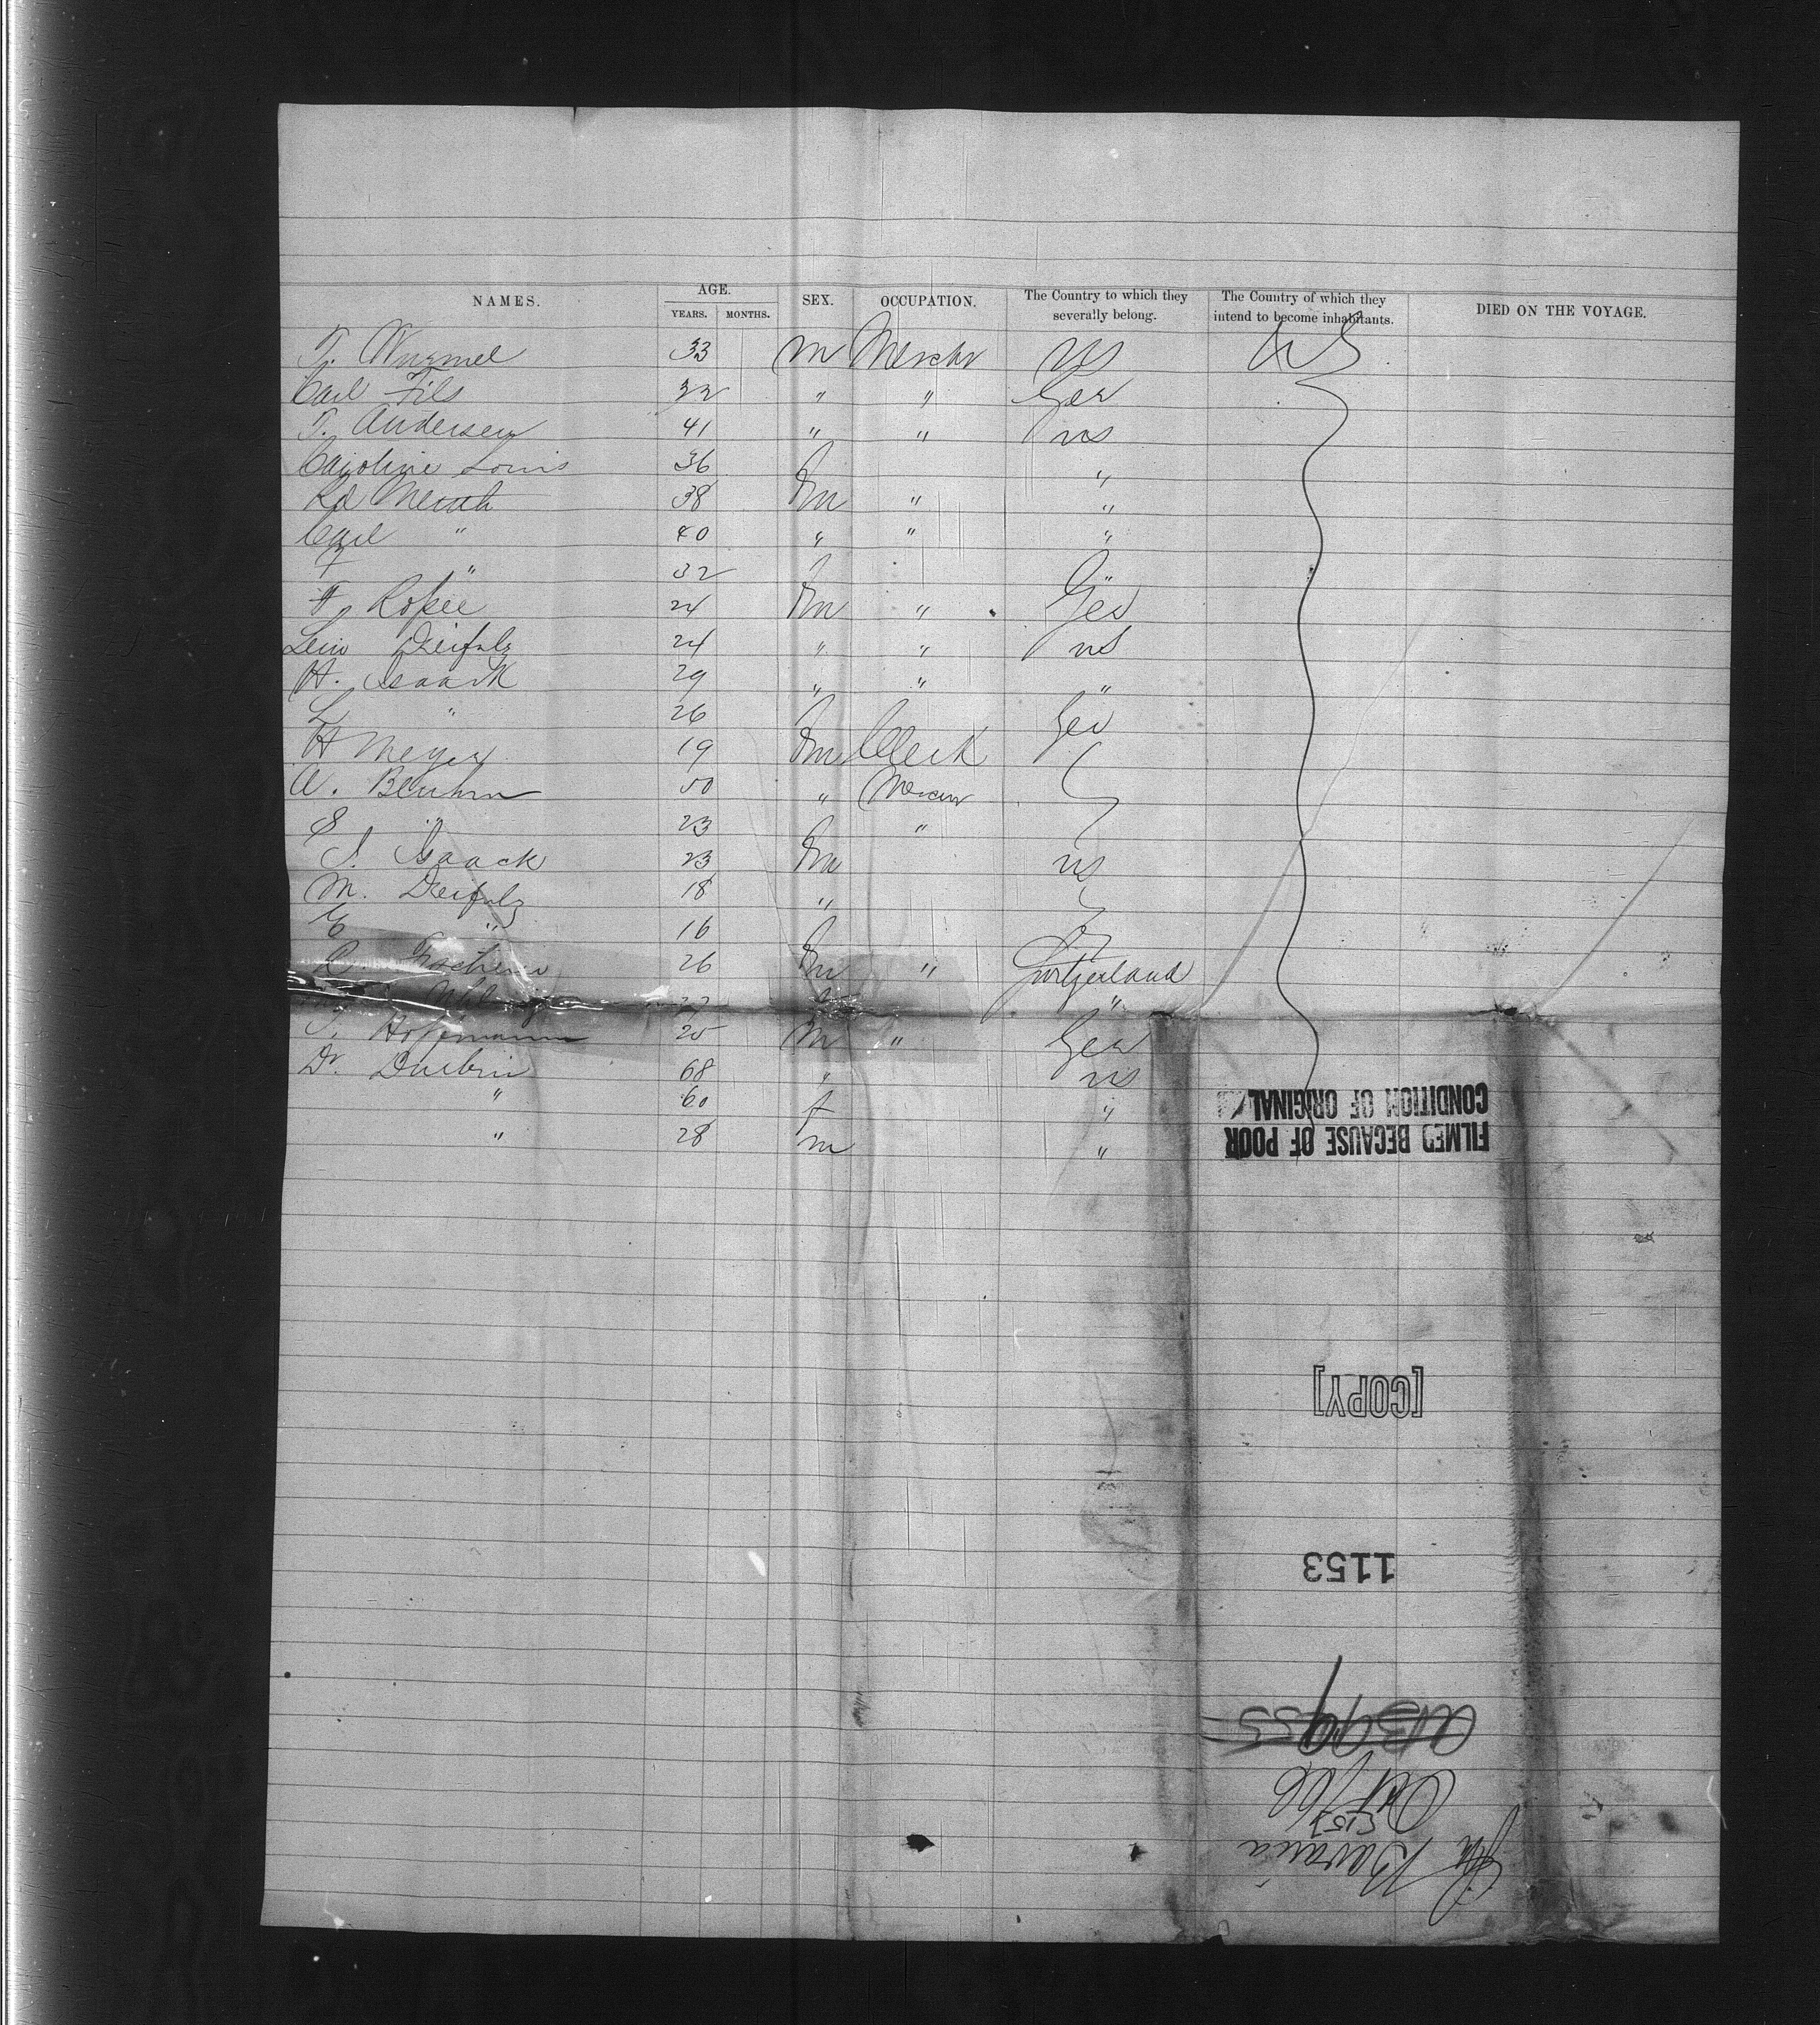 NAMES. AGE. SEX. OCCUPATION. The Country to which they severally belong. The Country of which they intend to become inhabitants. DIED ON THE VOYAGE.
YEARS. MONTHS.
T. Wurmel 33 m Merchr US US
Carl Fils 32 " " Ger
T. Andersen 41 " " US
Caroline Louis 36 f "
38 m " "
Carl " 40 " " "
F " 32 f "
F. 24 m " Ger
24 " " US
H. Isaack 29 " " "
L " 26 f Ger
H Meyer 19 m Clerk
A. Bluhm 50 "
S " 23 f "
S. Isaack 23 m US
M. 18 "
E " 16 f
26 m " Switzerland
f "
T. Hoffmann 25 m " Ger
Dr. Durbin 68 " US
" 60 f "
" 28 m "
FILMED BECAUSE OF POOR
CONDITION OF ORIGINAL
[COPY]
1153
Oct /66
Str Bavaria